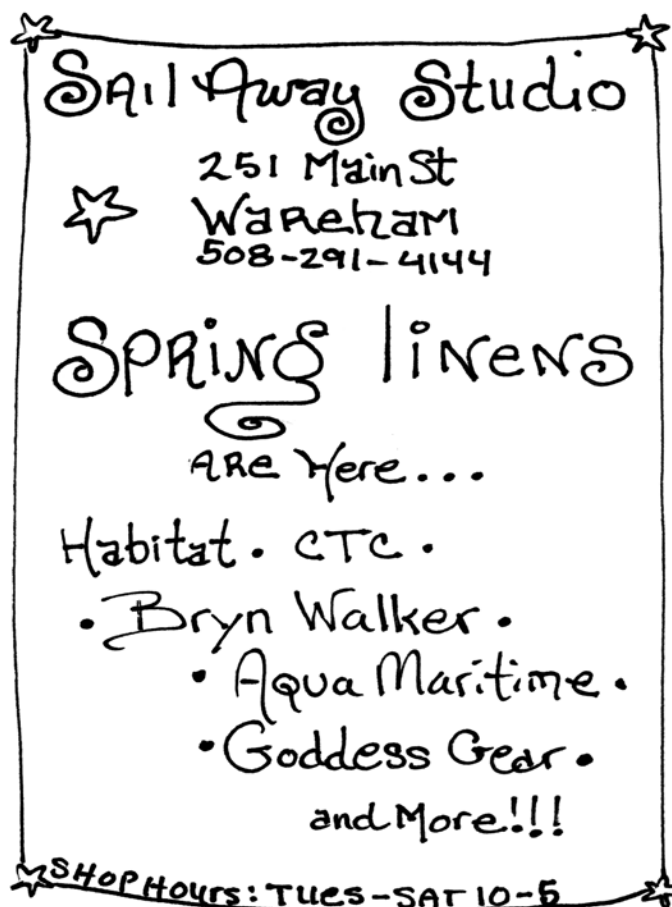 Sail Away Studio
251 Main St
Wareham
508-291-4144
Spring linens
are Here...
Habitat . CTC .
. Bryn Walker .
. Aqua Maritime .
. Goddess Gear .
and More!!!
SHOP HOURS: TUES-SAT 10-5